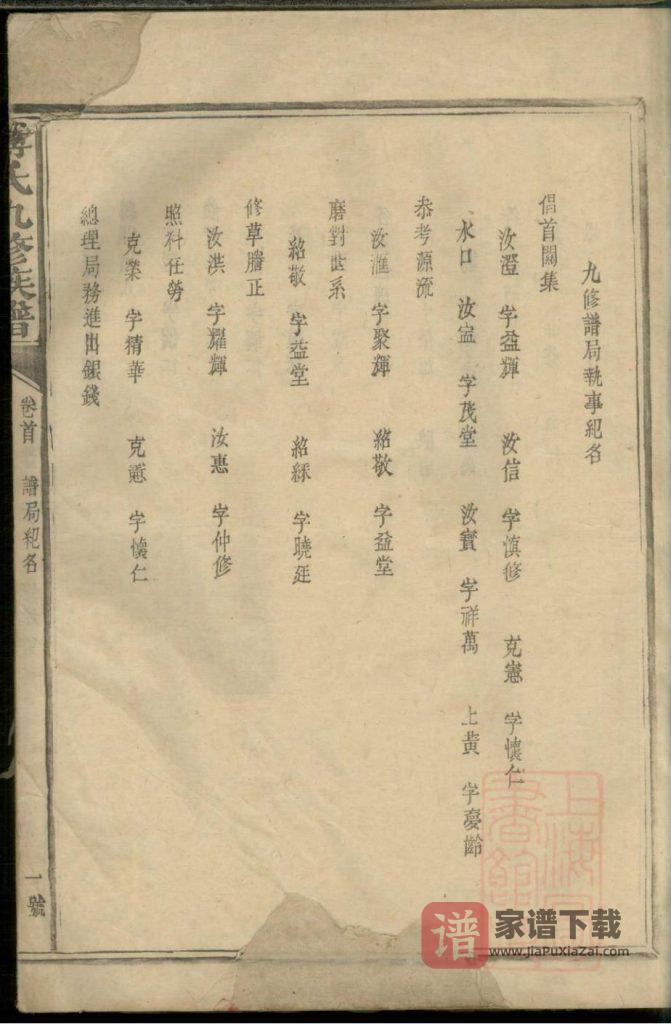 九修譜局執事紀名
倡首闗集
汝澄 字益輝 汝信 字慎修 克憲 字懷仁
水口 汝寍 字茂堂 汝實 字祥萬 上黄 字夢齡
叅考源流
汝滙 字聚輝 紹敬 字益堂
磨對世系
紹敬 字益堂 紹綵 字曉廷
修草謄正
汝洪 字耀輝 汝惠 字仲修
照料任勞
克榮 字精華 克憲 字懷仁
總理局務進出銀錢
氏九修族譜
卷首 譜局紀名
一號
上海
書館
谱 家谱下载
www.jiaPuXiaZai.com